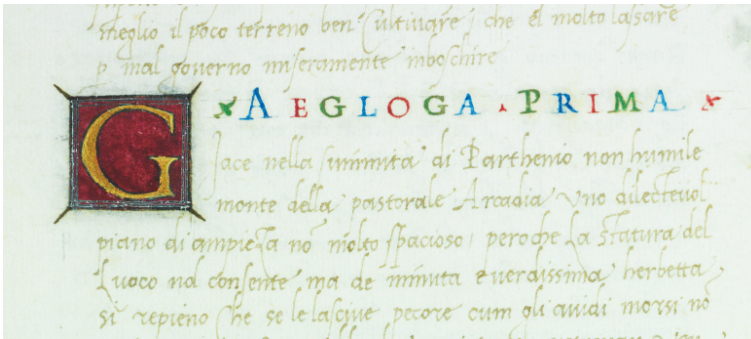 meglio il poco terreno ben Cultivare, che el molto lassare
p mal governo miseramente inboschire
AEGLOGA PRIMA
Giace nella summita di Parthenio non humile
monte della pastorale Arcadia Vno dilectevol
piano di ampieza no molto spacioso, peroche La statura del
Luoco nol consente ma de minuta e verdissima herbetta
si repieno che se le lascive pecore cum gli avidi morsi no